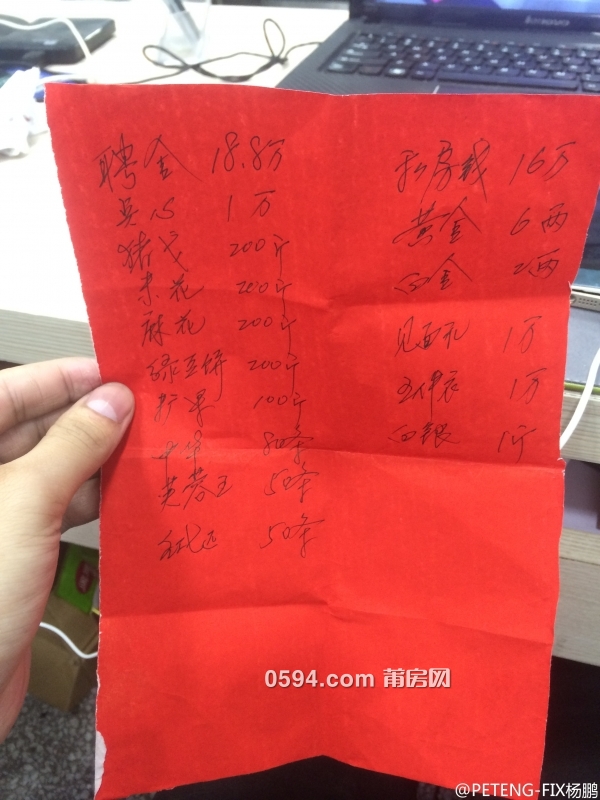 lenovo
聘金 18.8万
点心 1万
200斤
米花 200斤
麻花 200斤
绿豆饼 200斤
100斤
中华 80条
芙蓉王 50条
50条
私房钱 16万
黄金 6两
白金 2两
见面礼 1万
1万
白银 1斤
0594.com 莆房网
@PETENG-FIX杨鹏